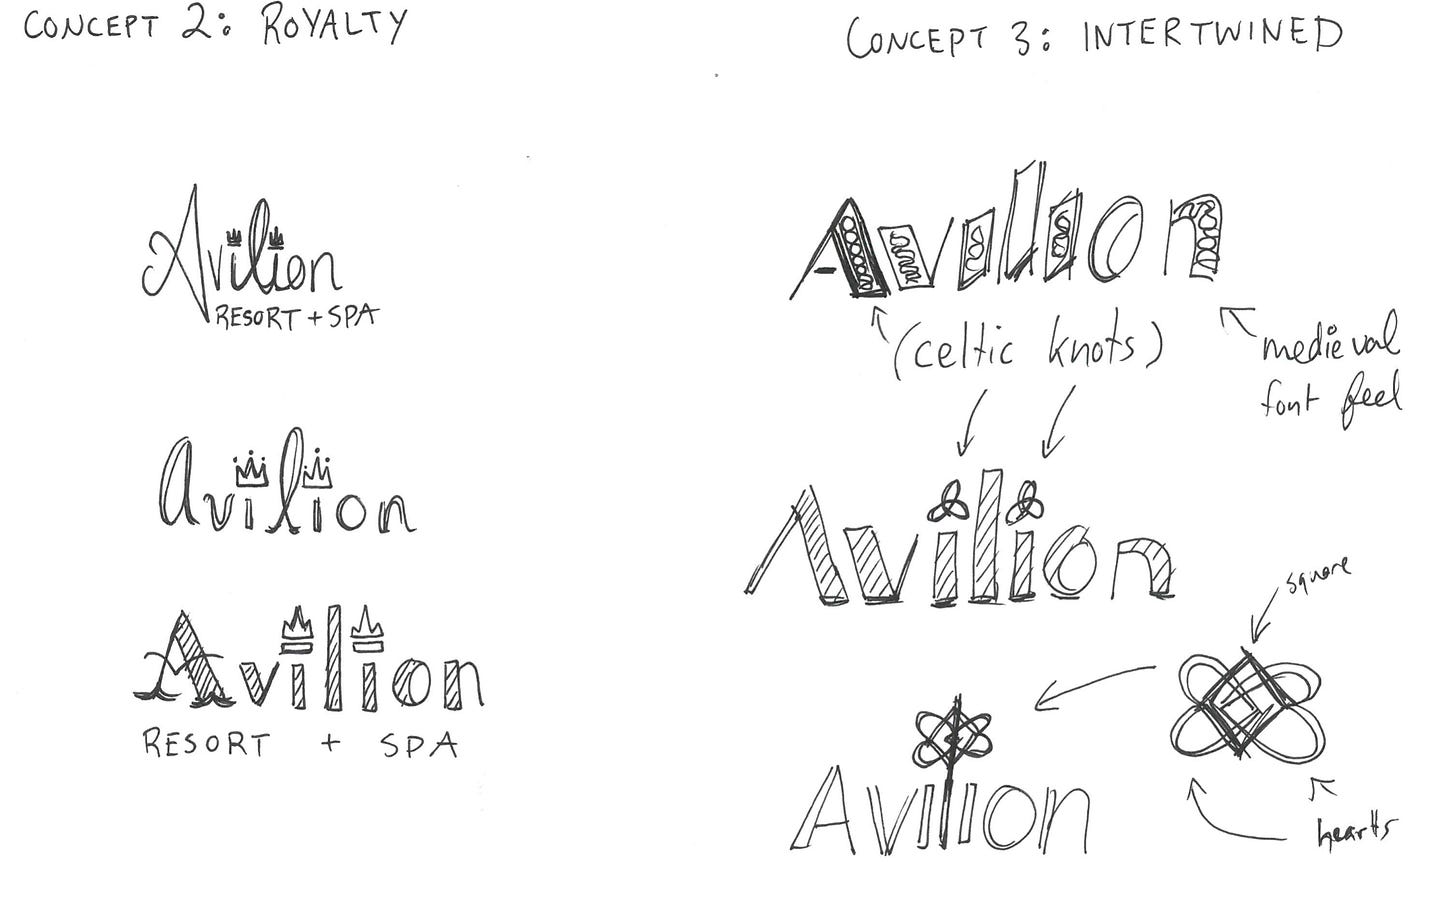 CONCEPT 2: ROYALTY
Avilion
RESORT + SPA
Avilion
Avilion
RESORT + SPA
CONCEPT 3: INTERTWINED
Avilion
(celtic knots)
medieval
font feel
Avilion
square
Avilion
hearts